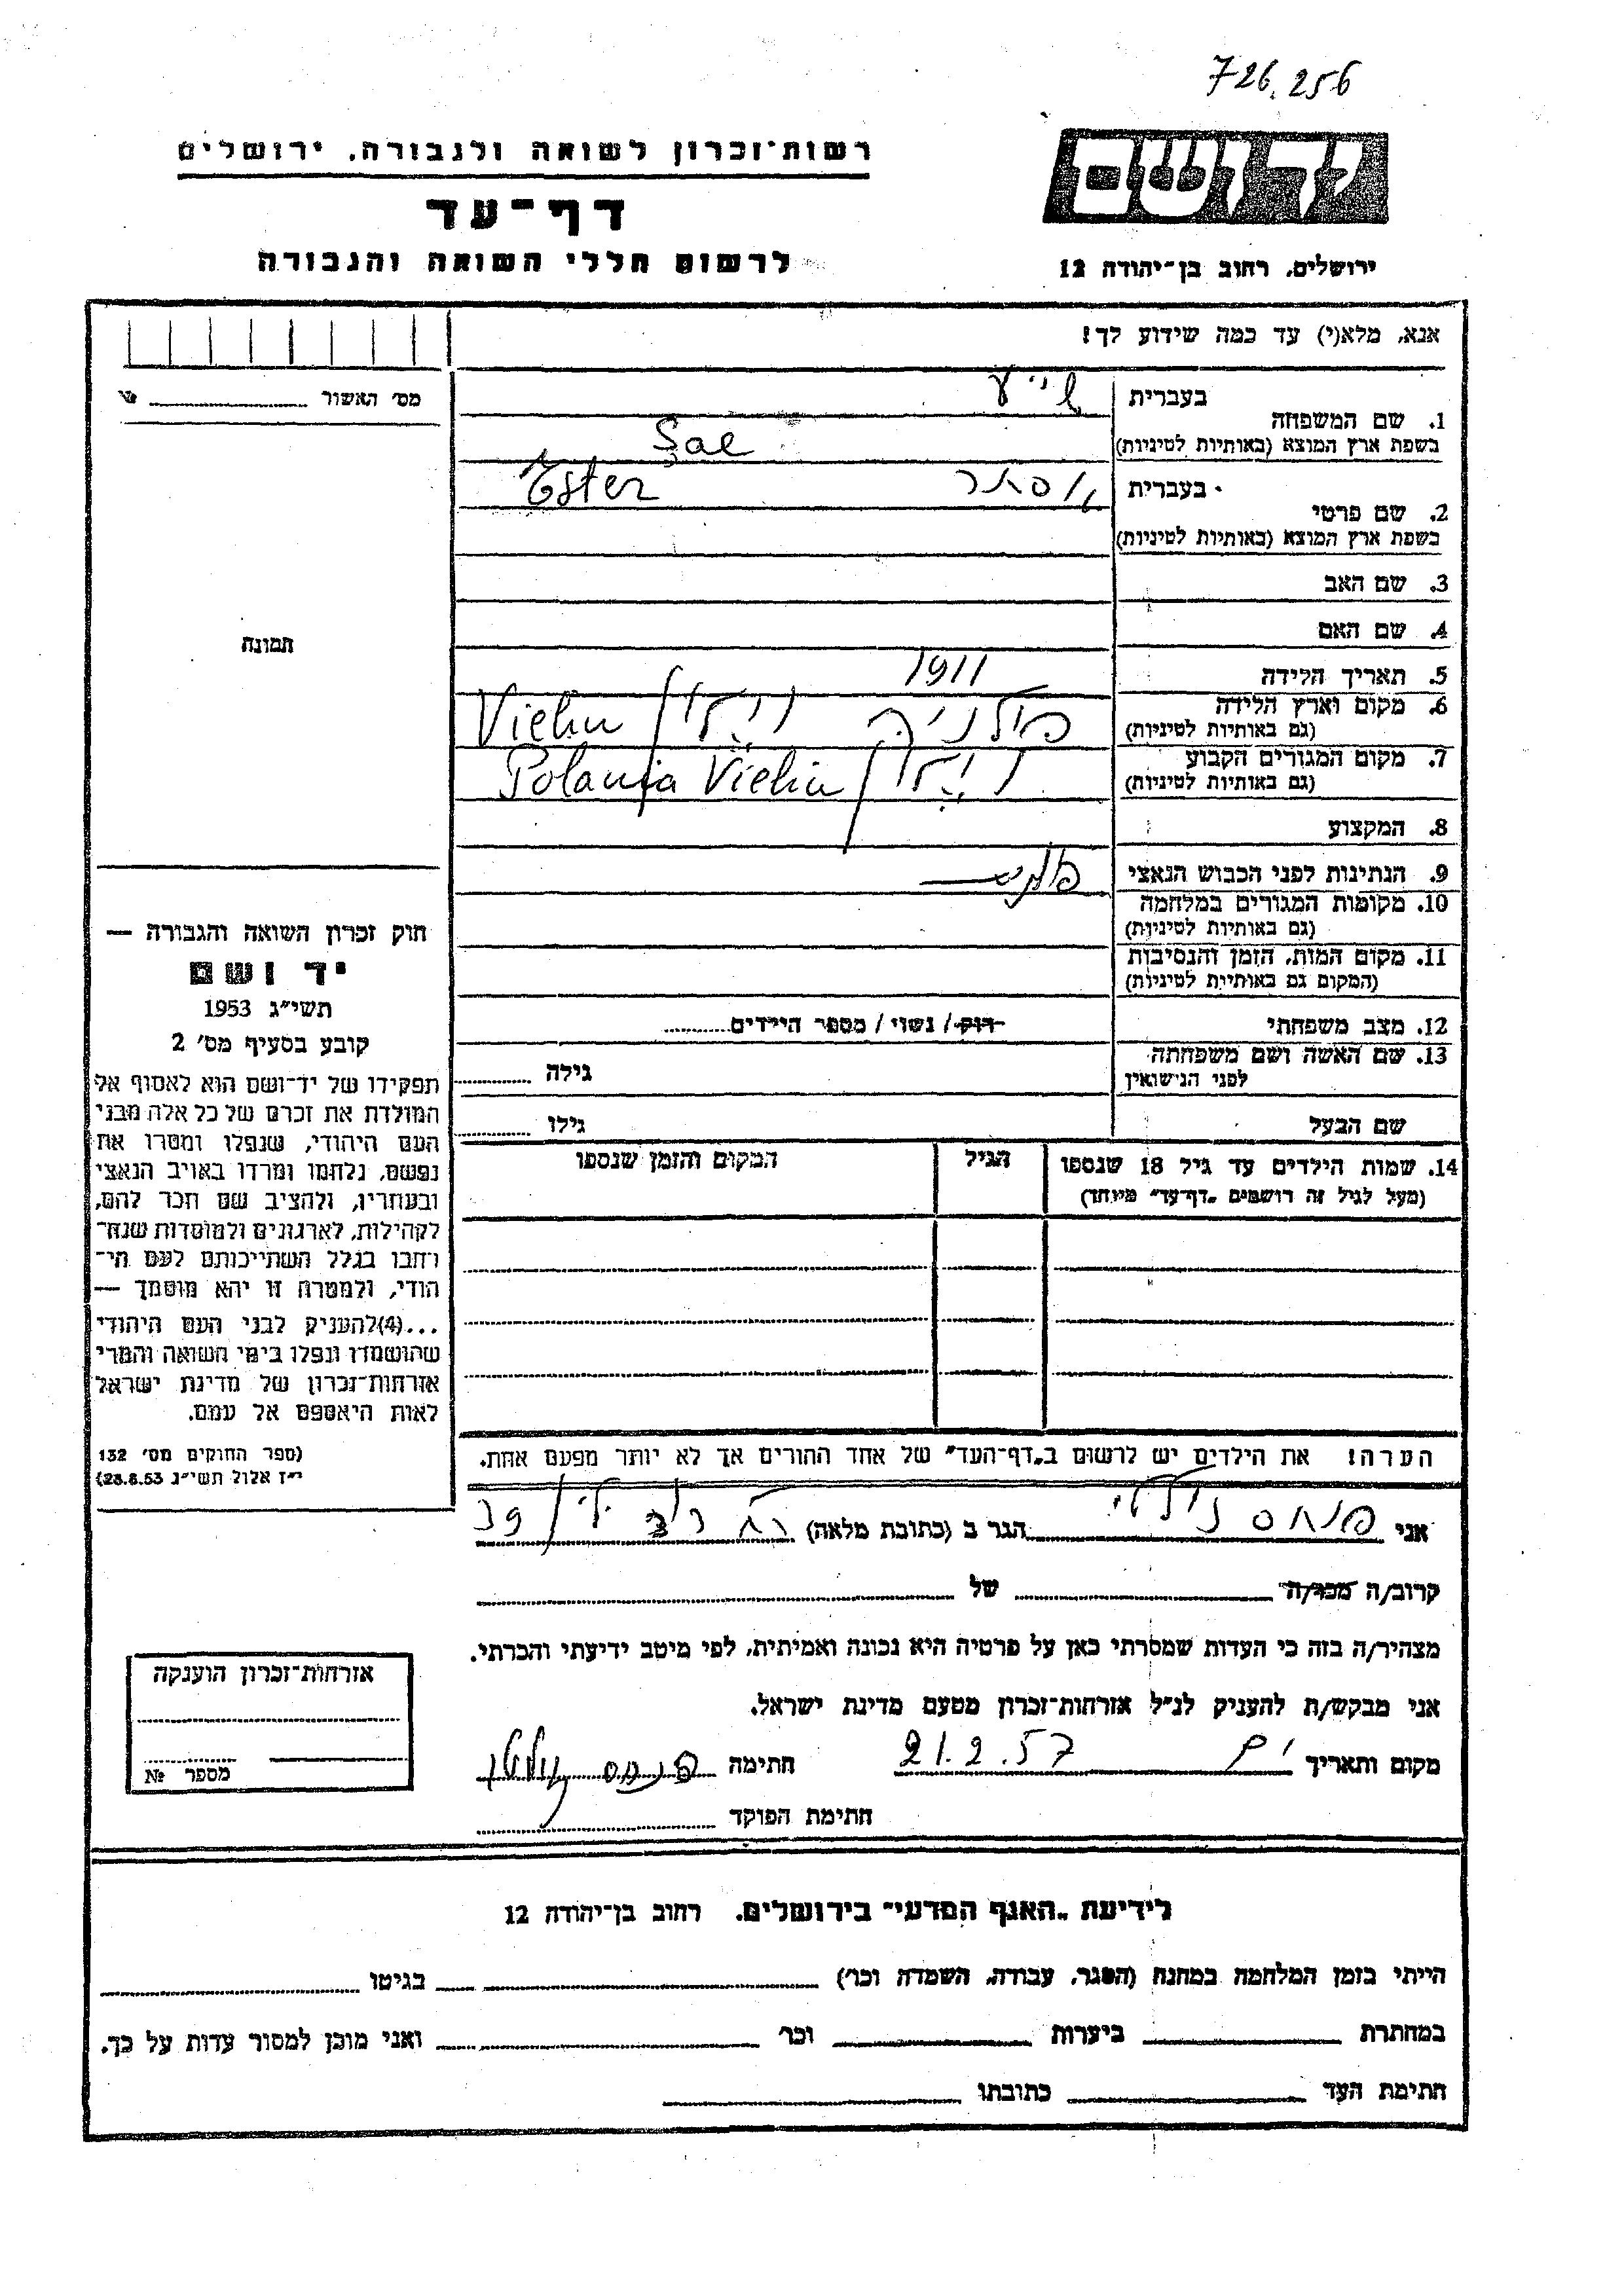 726.256
רשות־זכרון לשואה ולגבורה, ירושלים
יד ושם
דף־עד
לרשום חללי השואה והגבורה
ירושלים, רחוב בן־יהודה 12
אנא, מלא(י) עד כמה שידוע לך!
מס׳ האשור №
1. שם המשפחה
בעברית
שייע
בשפת ארץ המוצא (באותיות לטיניות)
Şae
2. שם פרטי
בעברית אסתר Ester
בשפת ארץ המוצא (באותיות לטיניות)
3. שם האב
4. שם האם
תמונה
5. תאריך הלידה 1911
6. מקום וארץ הלידה
(גם באותיות לטיניות)
פולניה
7. מקום המגורים הקבוע
(גם באותיות לטיניות)
Polanja
8. המקצוע
9. הנתינות לפני הכבוש הנאצי
10. מקומות המגורים במלחמה
(גם באותיות לטיניות)
11. מקום המות, הזמן והנסיבות
(המקום גם באותיית לטיניות)
12. מצב משפחתי רווק / נשוי / מספר הילדים
13. שם האשה ושם משפחתה
לפני הנישואין
גילה
שם הבעל גילו
14. שמות הילדים עד גיל 18 שנספו
(מעל לגיל זה רושמים „דף־עד״ מיוחד)
הגיל
המקום והזמן שנספו
חוק זכרון השואה והגבורה —
יד ושם
תשי״ג 1953
קובע בסעיף מס׳ 2
תפקידו של יד־ושם הוא לאסוף אל
המולדת את זכרם של כל אלה מבני
העם היהודי, שנפלו ומסרו את
נפשם, נלחמו ומרדו באויב הנאצי
ובעוזריו, ולהציב שם וזכר להם,
לקהילות, לארגונים ולמוסדות שנח־
רבו בגלל השתייכותם לעם הי־
הודי, ולמטרה זו יהא מוסמך —
...(4)להעניק לבני העם היהודי
שהושמדו ונפלו בימי השואה והמרי
אזרחות־זכרון של מדינת ישראל
לאות היאספם אל עמם.
(ספר החוקים מס׳ 132
י״ז אלול תשי״ג 28.8.53)
הערה! את הילדים יש לרשום ב„דף־העד״ של אחד ההורים אך לא יותר מפעם אחת.
אני פנחס הגר ב (כתובת מלאה)
קרוב/ה מכר/ה של
מצהיר/ה בזה כי העדות שמסרתי כאן על פרטיה היא נכונה ואמיתית, לפי מיטב ידיעתי והכרתי.
אני מבקש/ת להעניק לנ״ל אזרחות־זכרון מטעם מדינת ישראל.
מקום ותאריך 21.2.57 חתימה פנחס
חתימת הפוקד
אזרחות־זכרון הוענקה
מספר №
לידיעת „האגף המדעי״ בירושלים, רחוב בן־יהודה 12
הייתי בזמן המלחמה במחנה (הסגר, עבודה, השמדה וכו׳) בגיטו
במחתרת ביערות וכו׳ ואני מוכן למסור עדות על כך.
חתימת העד כתובתו